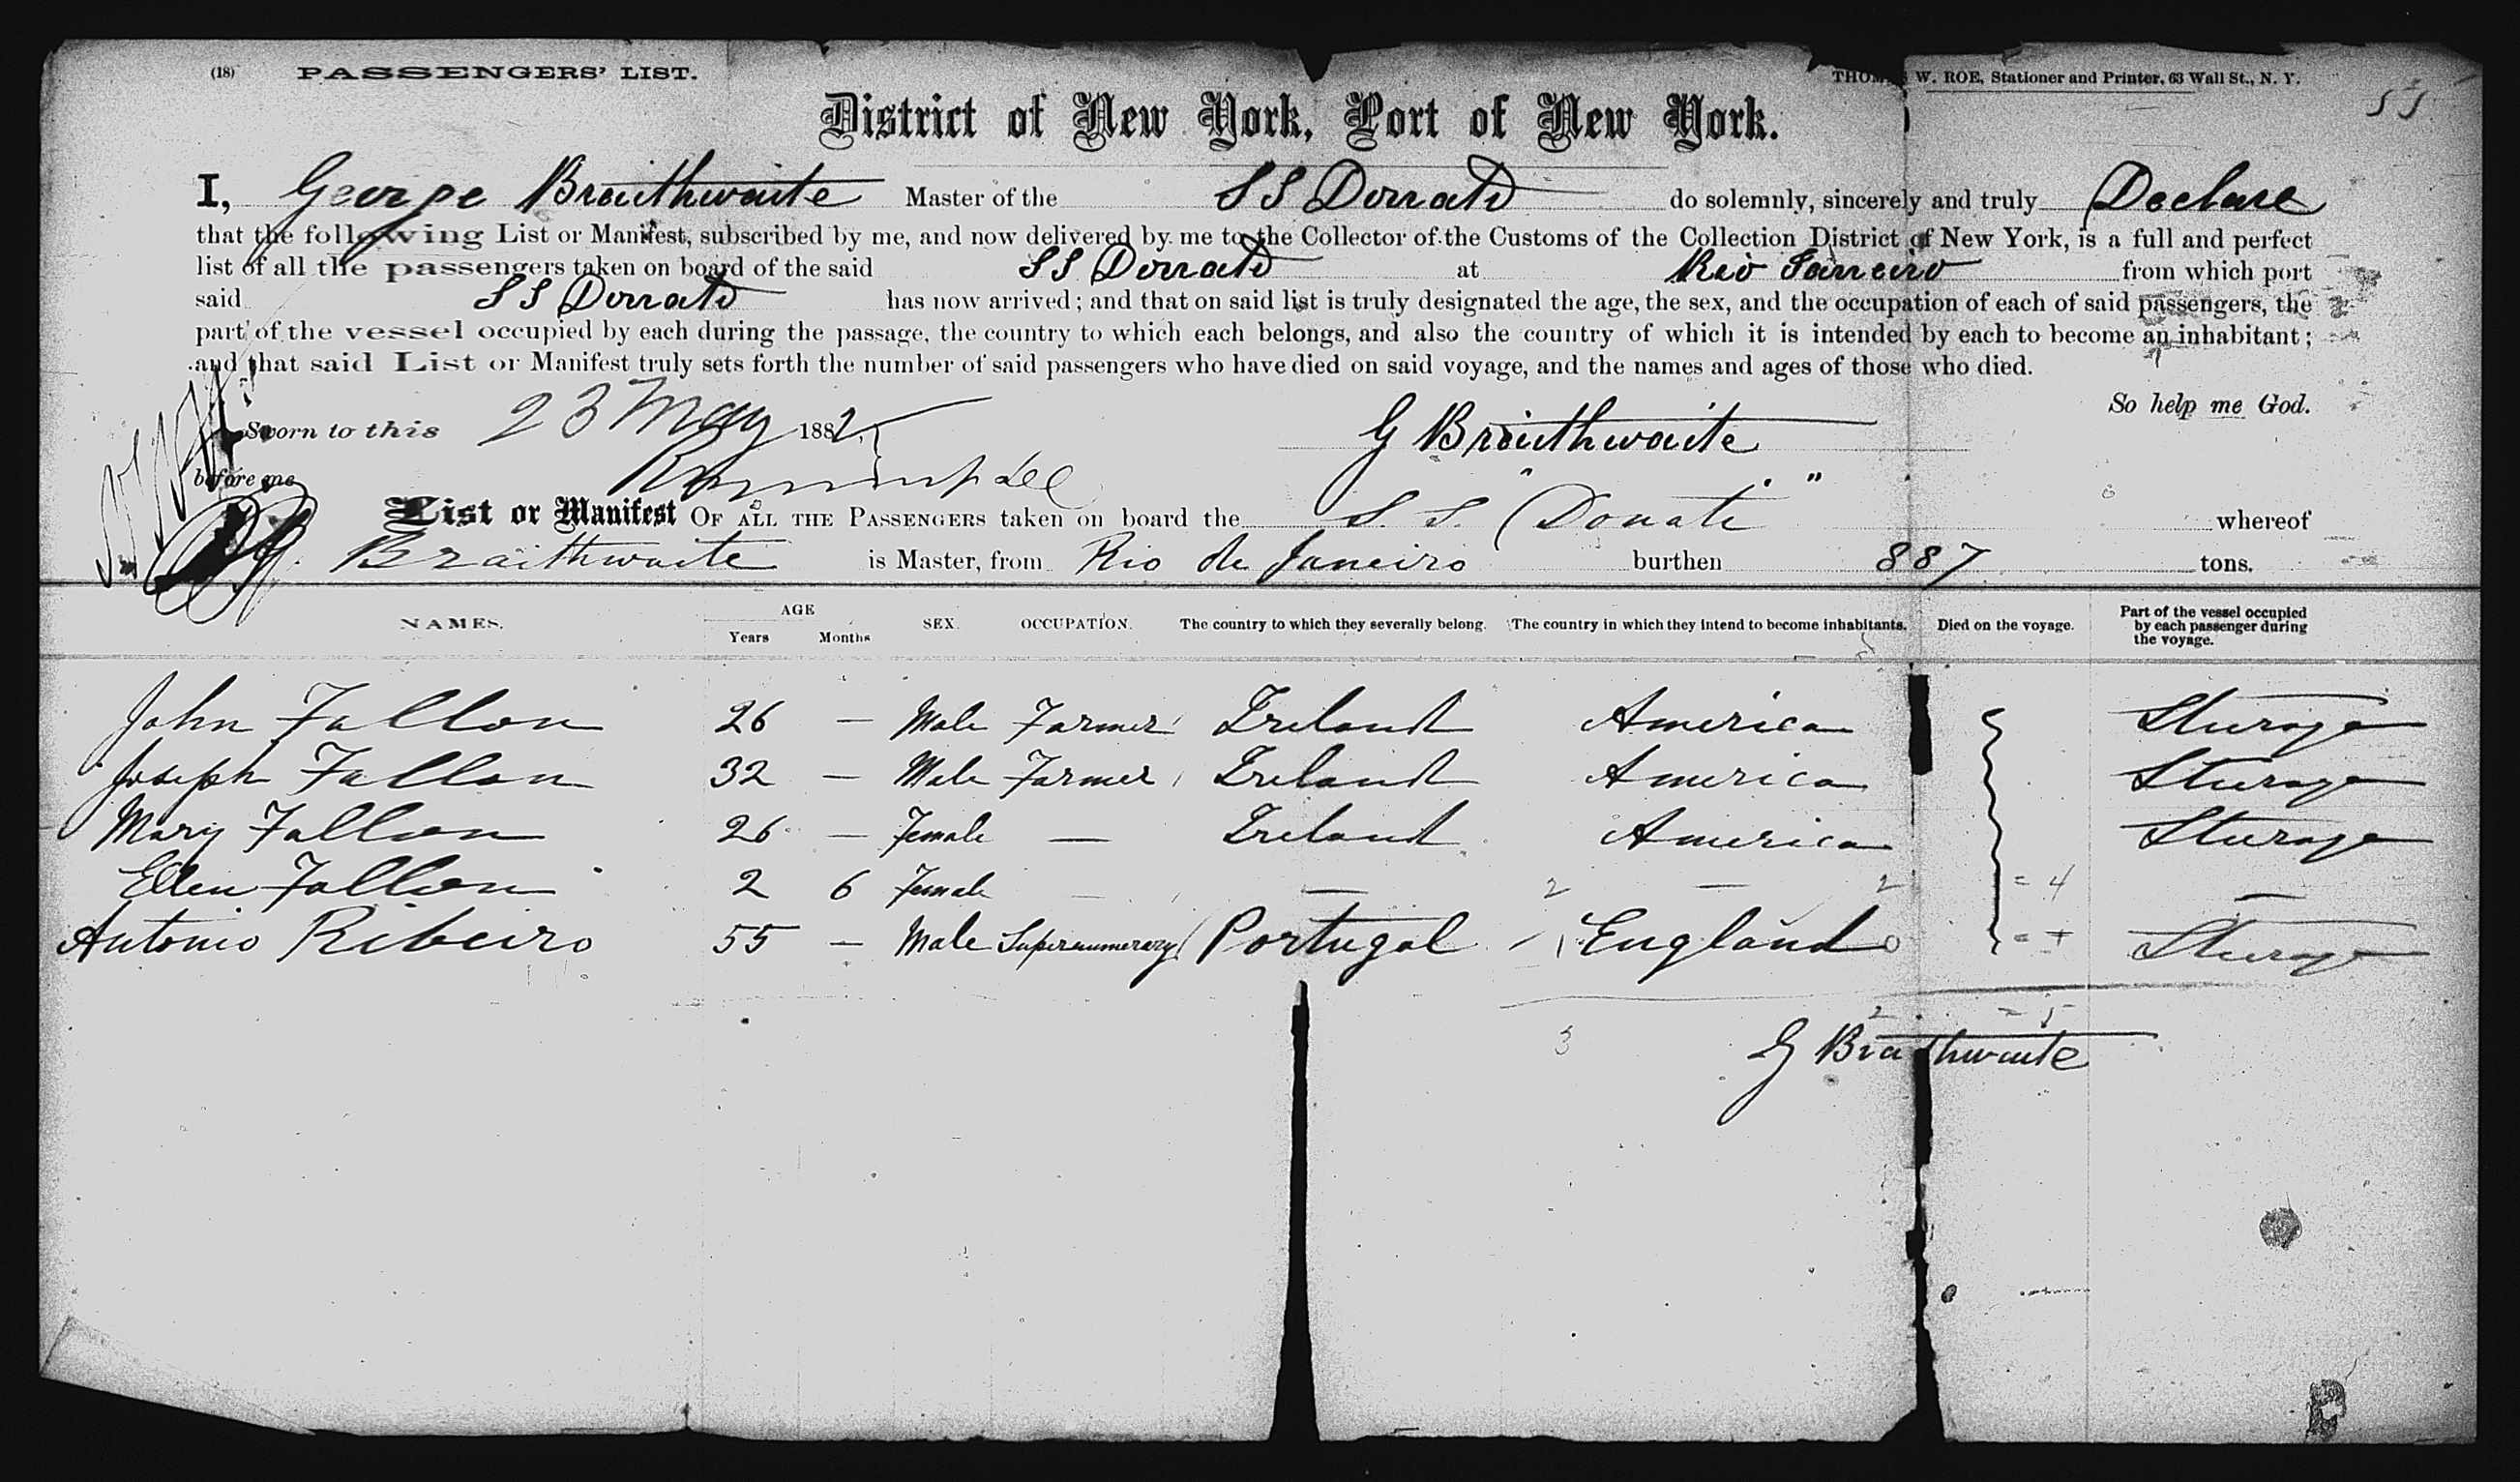 (18) PASSENGERS' LIST.
THOMAS W. ROE, Stationer and Printer, 63 Wall St., N. Y.
District of New York, Port of New York.
I, George Braithwaite Master of the S S Donati do solemnly, sincerely and truly Declare
that the following List or Manifest, subscribed by me, and now delivered by me to the Collector of the Customs of the Collection District of New York, is a full and perfect
list of all the passengers taken on board of the said S S Donati at Rio Janeiro from which port
said S S Donati has now arrived; and that on said list is truly designated the age, the sex, and the occupation of each of said passengers, the
part of the vessel occupied by each during the passage, the country to which each belongs, and also the country of which it is intended by each to become an inhabitant;
and that said List or Manifest truly sets forth the number of said passengers who have died on said voyage, and the names and ages of those who died.
So help me God.
Sworn to this 23 May 1882, G Braithwaite
before me
List or Manifest OF ALL THE PASSENGERS taken on board the S. S. "Donati" whereof
G. Braithwaite is Master, from Rio de Janeiro burthen 887 tons.
NAMES. AGE Years Months SEX. OCCUPATION. The country to which they severally belong. The country in which they intend to become inhabitants. Died on the voyage. Part of the vessel occupied by each passenger during the voyage.
John Fallon 26 — Male Farmer Ireland America Sturage
Joseph Fallon 32 — Male Farmer Ireland America Sturage
Mary Fallon 26 — Female — Ireland America Sturage
Ellen Fallon 2 6 Female — — 2 — 2 = 4 —
Antonio Ribeiro 55 — Male Supernumerary Portugal England Sturage
2 = 5
3 G Braithwaite